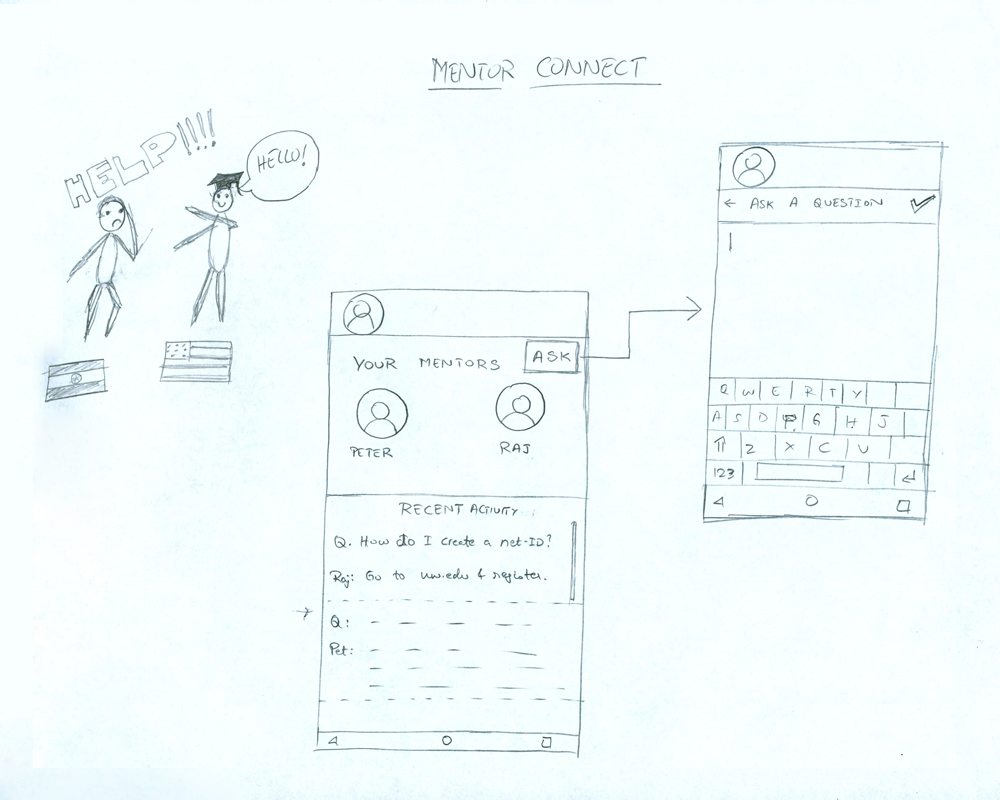 MENTOR CONNECT
HELP!!!!
HELLO!
YOUR MENTORS
ASK
PETER
RAJ
RECENT ACTIVITY
Q. How do I create a net-ID?
Raj: Go to uw.edu & register.
Q:
Pet:
← ASK A QUESTION
Q W E R T Y
A S D F G H J
Z X C V
123